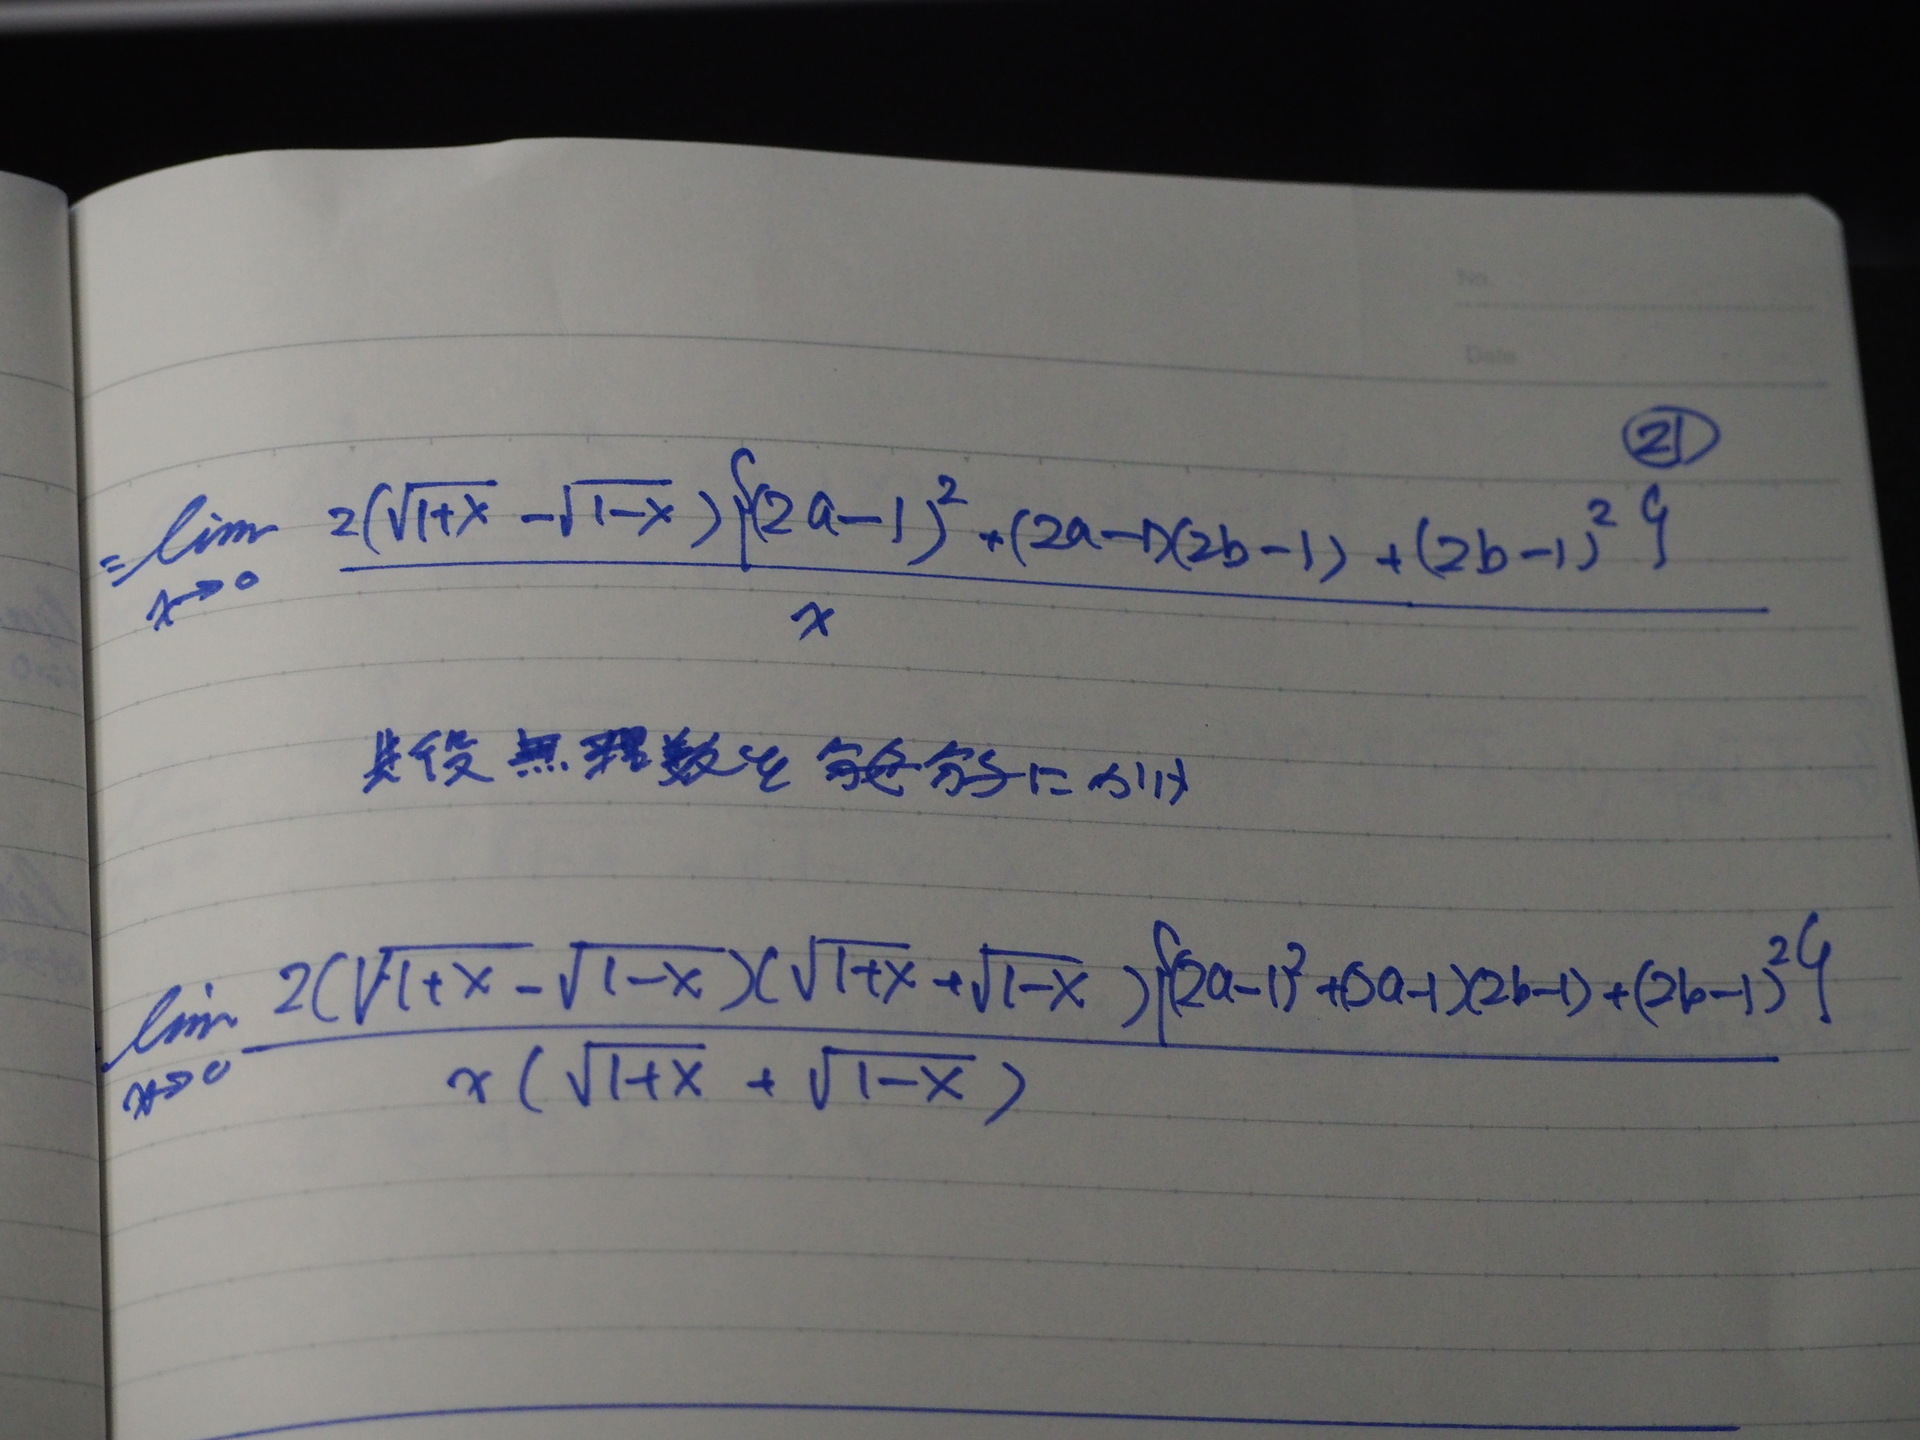 No.
Date
㉑
=lim x→0 2(√1+x -√1-x){(2a-1)²+(2a-1)(2b-1)+(2b-1)²}
x
共役無理数を分母分子にかけ
lim x→0 2(√1+x-√1-x)(√1+x+√1-x){(2a-1)²+(2a-1)(2b-1)+(2b-1)²}
x(√1+x + √1-x)